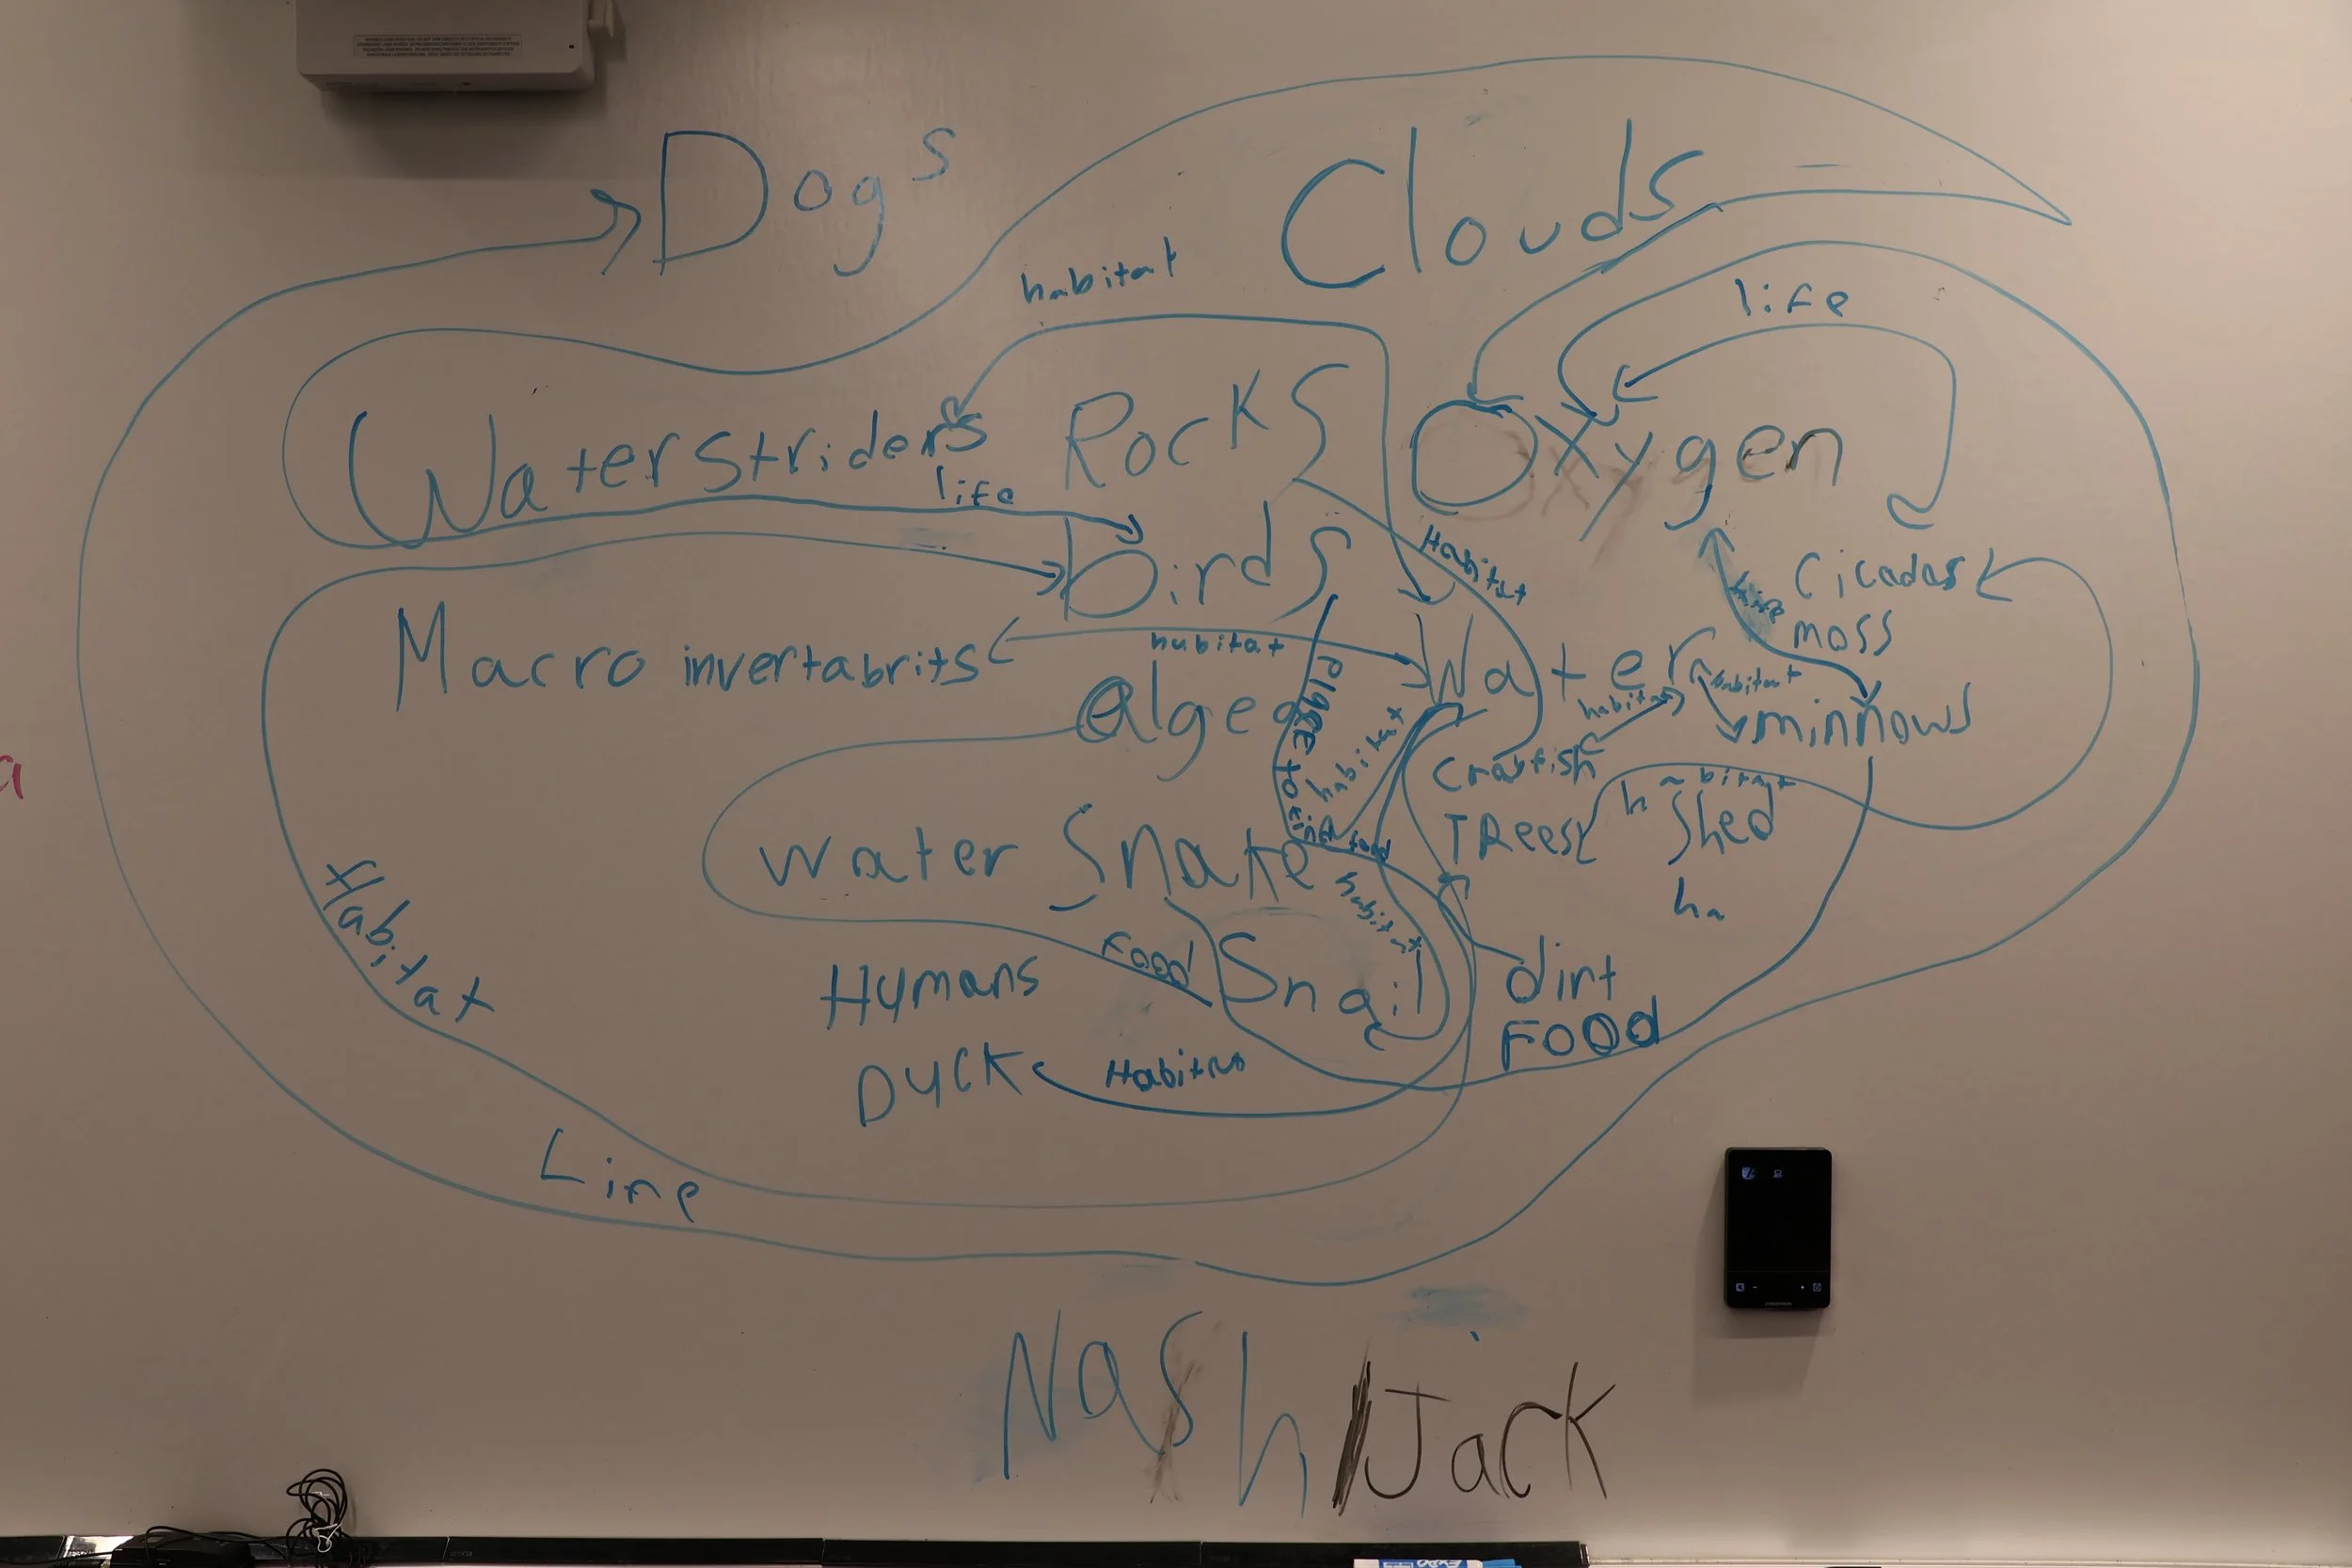 Dogs
Clouds
habitat
life
Waterstriders
Rocks
Oxygen
life
birds
Habitat
Cicadas
moss
Macro invertabrits
hubitat
Water
habitat
algea
habitat
minnows
habitat
Crayfish
habitat
TRees
Shed
ha
water Snake
food
habitat
Habitat
Food
Snail
dirt
Humans
FOOd
DUCK
Line
Nash
Jack